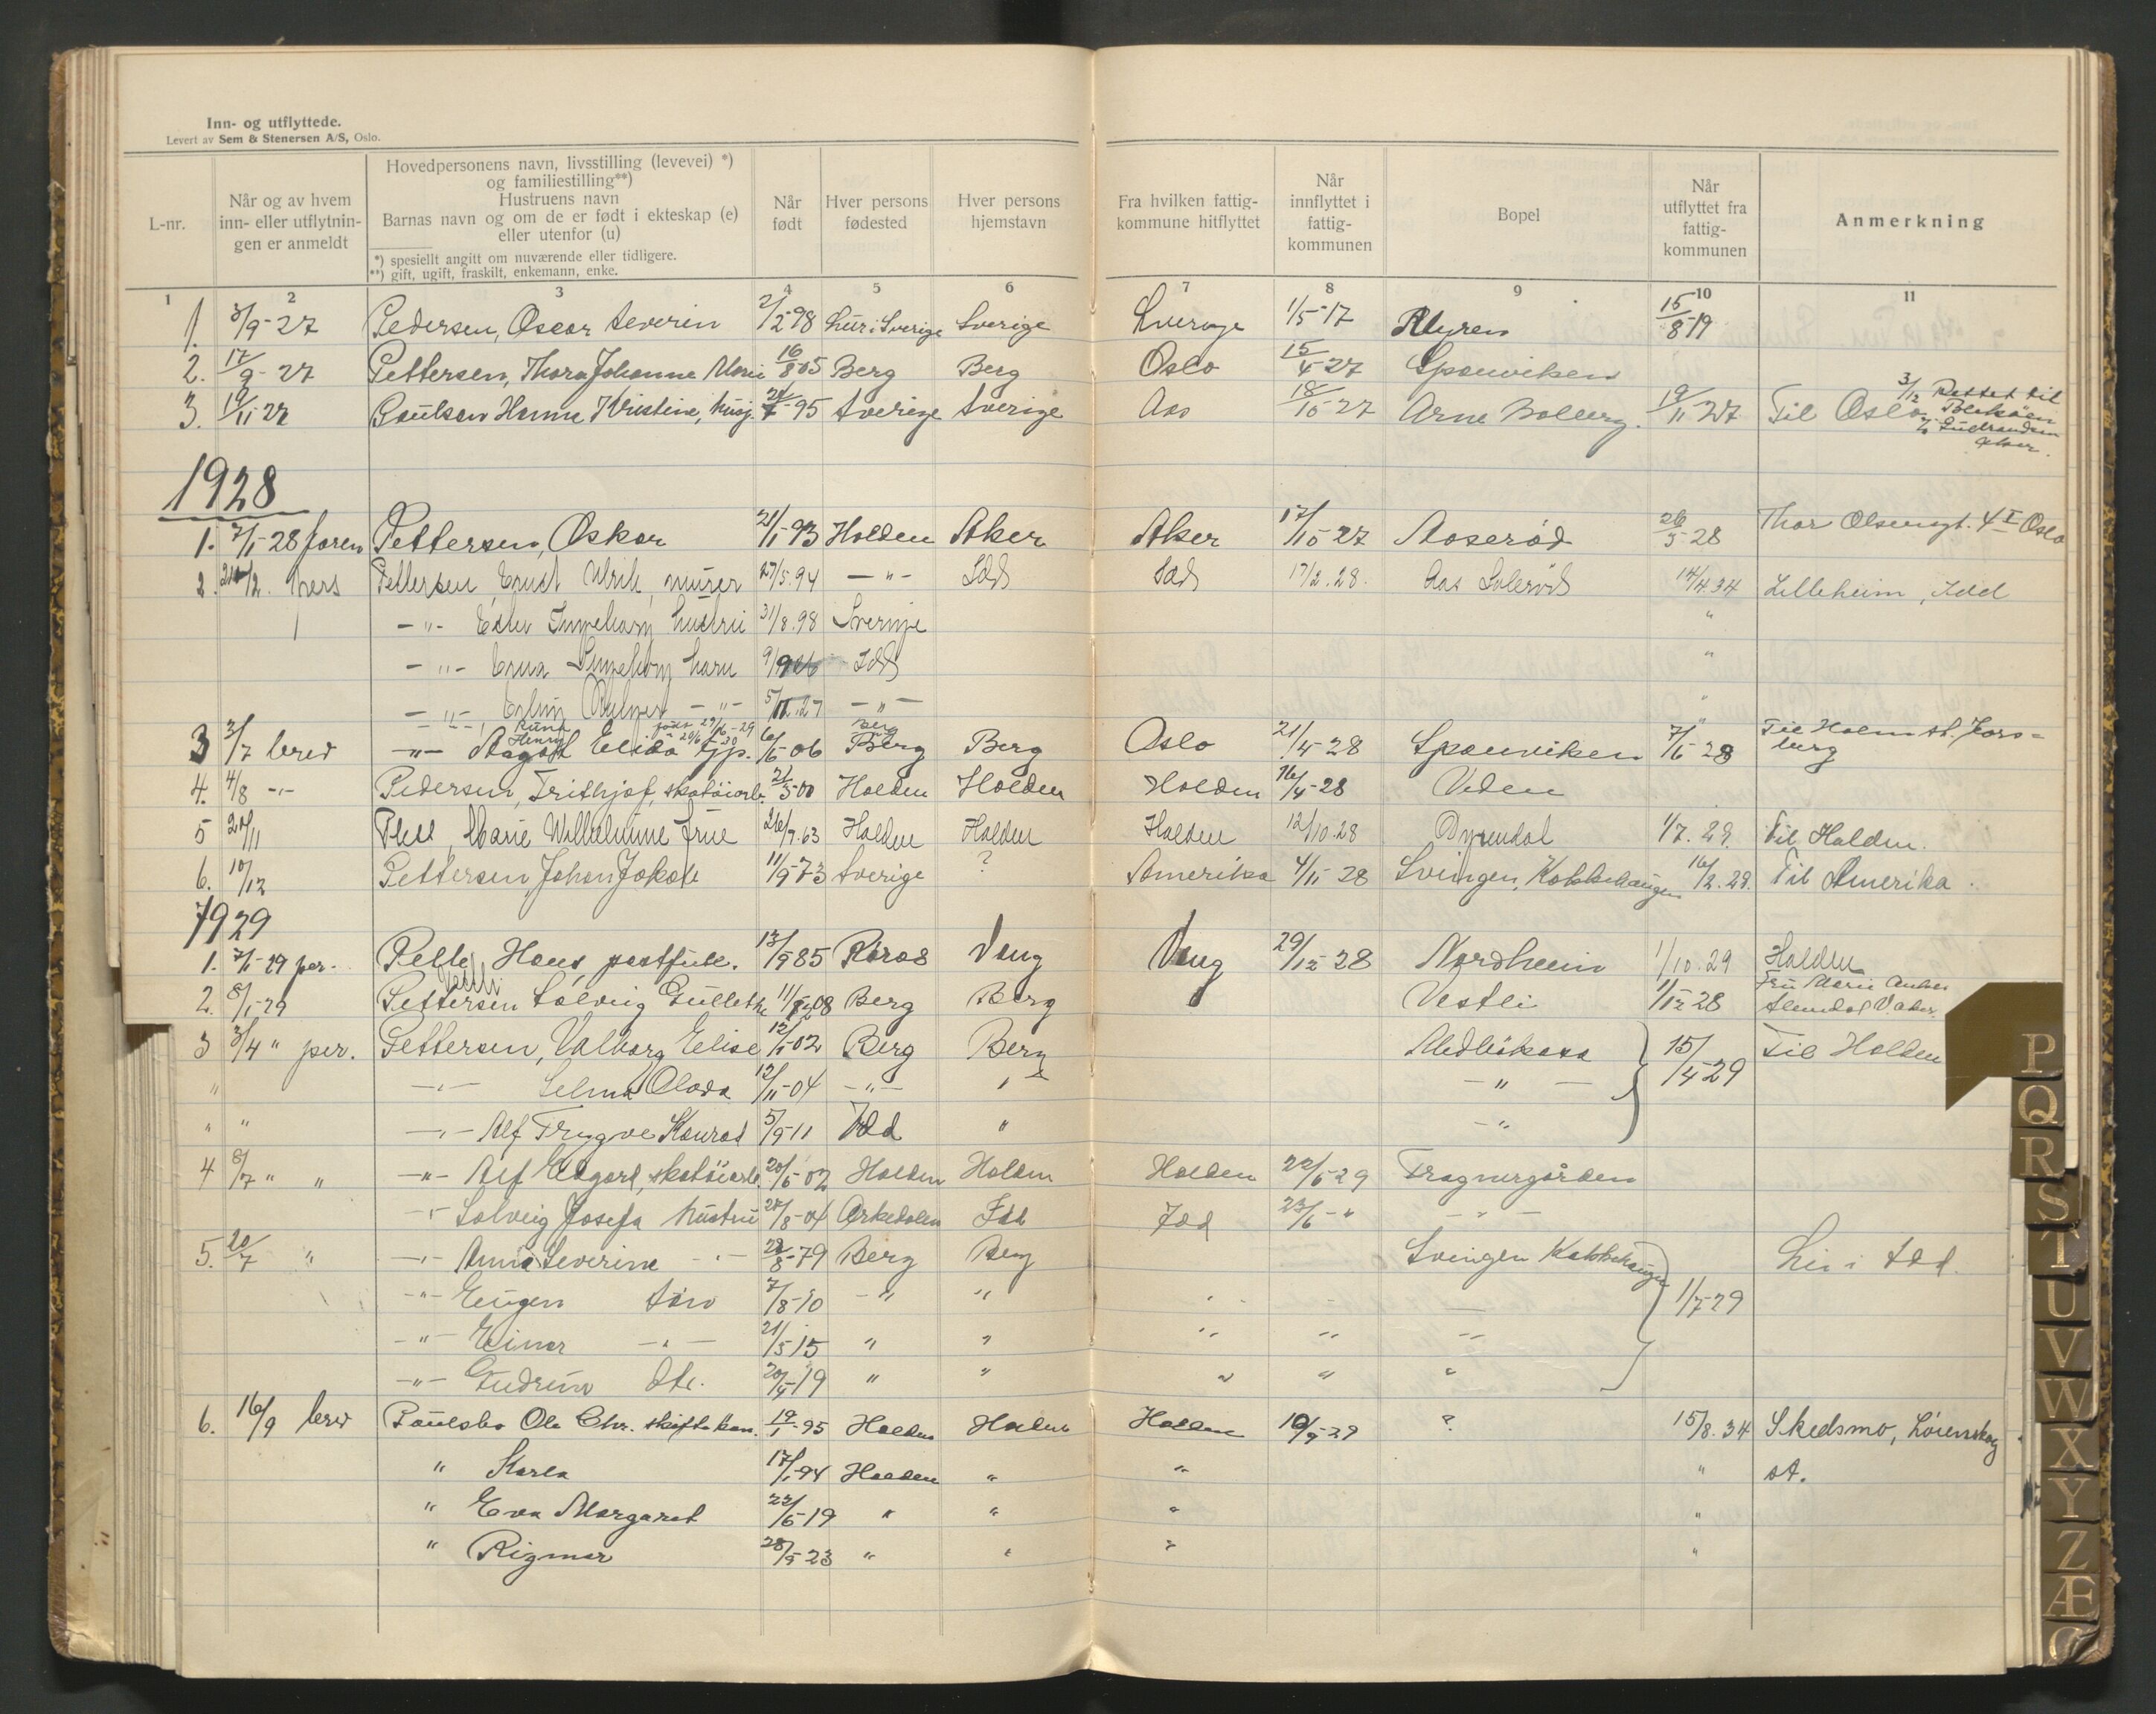 Inn- og utflyttede.
Levert av Sem & Stenersen A/S, Oslo.
L-nr.
Når og av hvem inn- eller utflytnin- gen er anmeldt
Hovedpersonens navn, livsstilling (levevei) *)
og familiestilling**)
Hustruens navn
Barnas navn og om de er født i ekteskap (e)
eller utenfor (u)
*) spesielt angitt om nuværende eller tidligere.
**) gift, ugift, fraskilt, enkemann, enke.
Når født
Hver persons fødested
Hver persons hjemstavn
Fra hvilken fattig- kommune hitflyttet
Når innflyttet i fattig- kommunen
Bopel
Når utflyttet fra fattig- kommunen
Anmerkning
1 2 3 4 5 6 7 8 9 10 11
1. 3/9-27 Pedersen, Oscar Severin 2/2-98 Sverige Sverige Sverige 1/5-17 Myren 15/8-19
2. 17/9-27 Pettersen, Thora Johanne Marie 16/8-05 Berg Berg Oslo 15/4-27 Sponviken
3. 19/11 27 Paulsen Hanna Kristine, husj. -95 Sverige Sverige Aas 18/10-27 Arne Solberg. 19/11 27 Til Oslo 3/12 Rettet til
1928
1. 7/1-28 foren Pettersen, Oskar 21/1-93 Halden Aker Aker 17/10-27 Aaserød 26/5-28 Thor Olsensgt. 4 I Oslo
2. pers Pettersen Ernst Ulrik, murer 27/5.94 -"- Idd Idd 17/2.28. Aas 14/4.34 Lilleheim, Idd
-"- Ingeborg hustru 31/8.98 Sverige "
-"- Erna Ingeborg barn Idd "
-"- -"- 5/11.27 -"- "
3 3/7 brev -"- Elida gp. 6/5-06 Berg Berg Oslo 21/4-28 Sponviken 7/6-28 Til Holm st. Fors-
berg
4. 4/8 -"- Pedersen, Frithjof, skotöiarb. 21/5-00 Halden Halden Halden 16/4-28 Veden
5 20/11 Marie Wilhelmine frue 26/7.63 Halden Halden Halden 12/10.28 1/7.29. Til Halden.
6. 10/12 Pettersen, Johan Jakob 11/9-73 Sverige ? Amerika 4/11-28 Svingen, Kokkehaugen 16/2.29. Til Amerika.
1929
1. 7/1-29 per. Pelle Hans postfull. 13/9-85 Röros Vang Vang 29/12-28 Nordheim 1/10.29 Halden
2. 8/1-29 Pettersen Solveig 08 Berg Berg Vestli 1/12 28 Fru Marie
3 3/4 " per. Pettersen, Valborg Elise -02 Berg Berg 15/4-29 Til Halden
" -"- Selma 12/11-04 -"- " -"-
" " -"- Alf Trygve Konrad 5/9-11 Idd " -"-
4 8/7 " " -"- Alf Edgard, skotöiarb. 20/6-02 Halden Halden Halden 22/6-29 Fragnergården
-"- Solveig Josefa hustru 27/8-04 Idd Idd 23/6-" -"-
5. 20/7 " -"- Anna Severine -"- 22/8-79 Berg Berg Svingen Kokkehaugen 1/7-29 i Idd.
-"- Eugen sön 7/8-10 -"- "
-"- Einar -"- 21/5-15 " " " " "
-"- Gudrun dtr. 20/4-19 " " " " "
6. 16/9 brev Paulsbo Ole Chr. 19/1-95 Halden Halden Halden 10/9-29 ? 15/8.34 Skedsmo, Lörenskog
" Karla 17/1-94 Halden " " " st.
" Eva Margaret 22/6-19 " " " "
" Rigmor 28/5-23 " " " "
P
Q
R
S
T
U
V
W
X
Y
Z
Æ